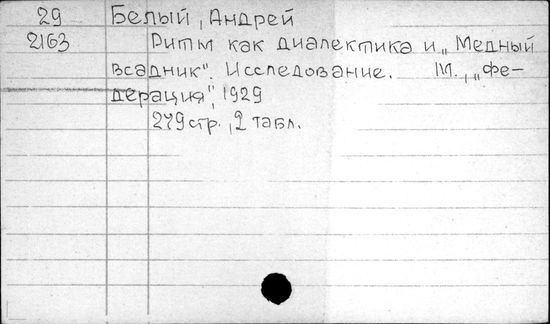 29 Белый, Андрей
2163 Ритм как диалектика и „Медный
всадник". Исследование. М., „Фе-
дерация", 1929
279 стр., 2 табл.